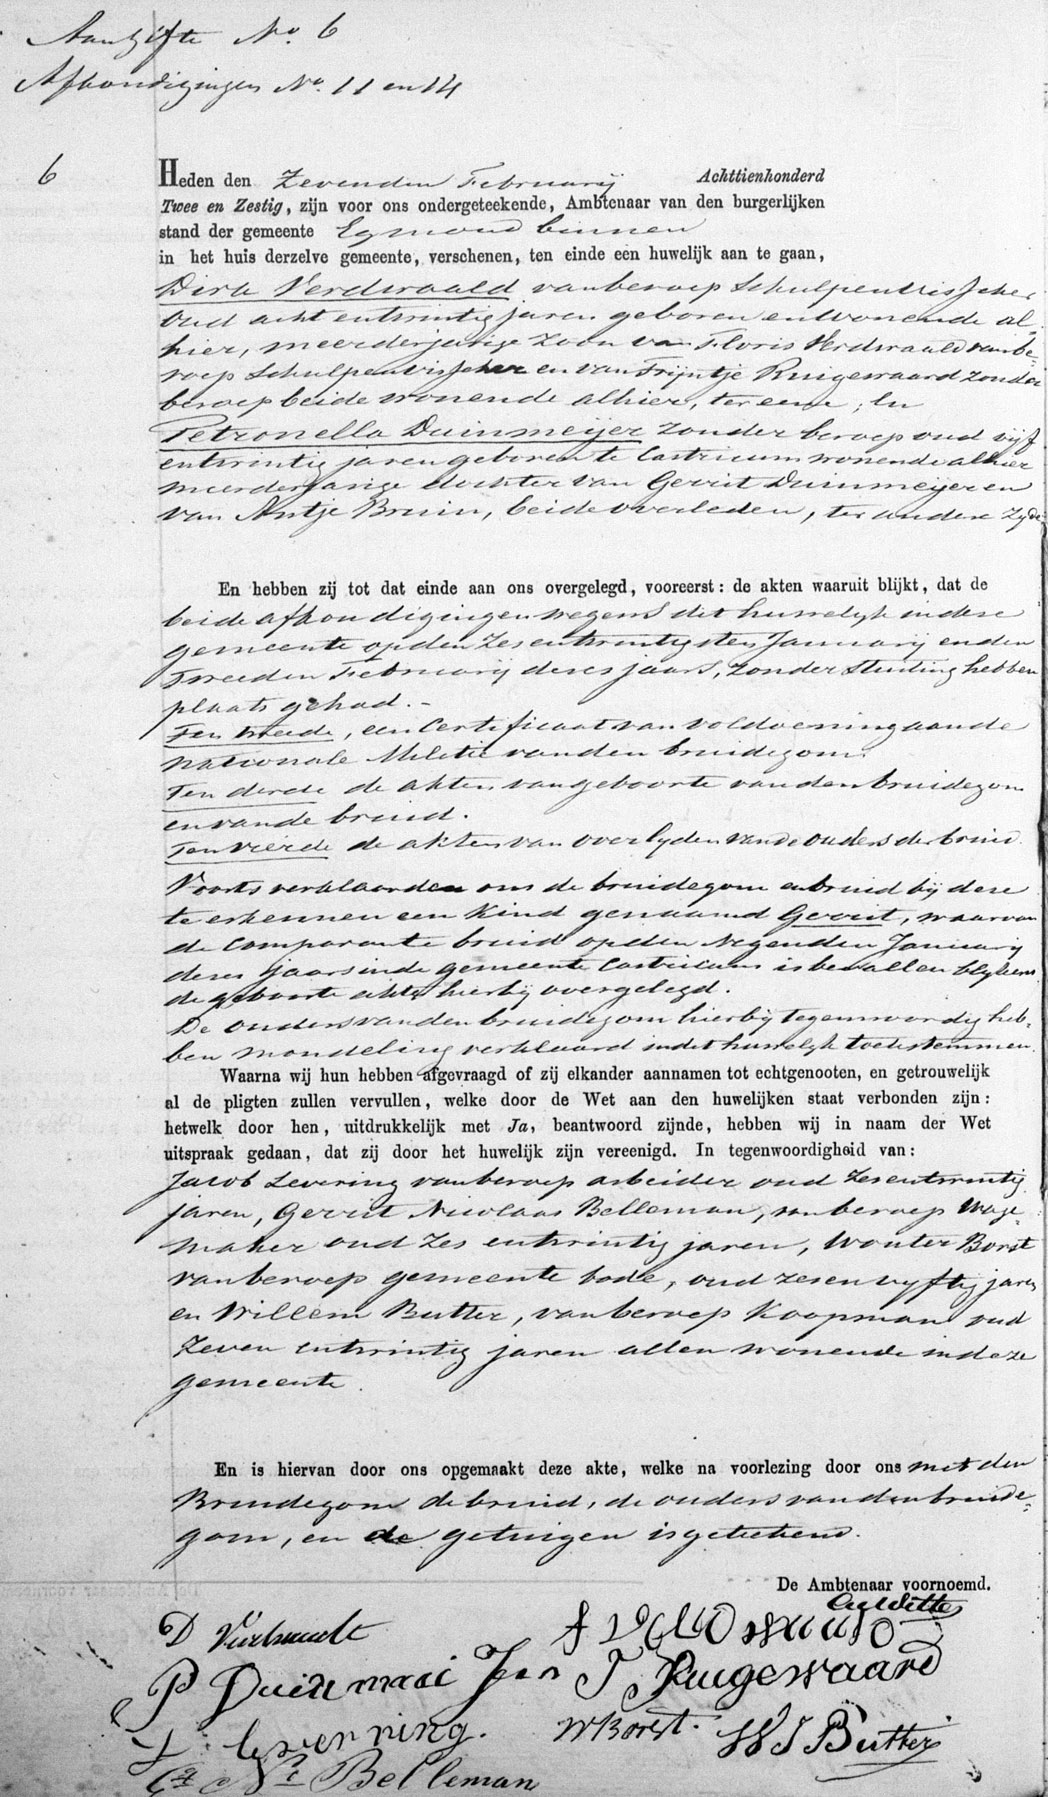 Aangifte No. 6
Afkondigingen No. 11 en 14
6
Heden den Zevenden Februarij Achttienhonderd
Twee en Zestig, zijn voor ons ondergeteekende, Ambtenaar van den burgerlijken
stand der gemeente Egmond binnen
in het huis derzelve gemeente, verschenen, ten einde een huwelijk aan te gaan,
Dirk Verdwaald van beroep Schulpenvisscher
oud acht entwintig jaren geboren en wonende al-
hier, meerderjarige Zoon van Floris Verdwaald van be-
roep Schulpenvisscher en van Trijntje Ruigewaard zonder
beroep beide wonende alhier, ter eene; En
Petronella Duinmeijer zonder beroep oud vijf
entwintig jaren geboren te Castricum wonende alhier
meerderjarige dochter van Gerrit Duinmeijer en
van Antje Bruin, beide overleden, ter andere Zyde
En hebben zij tot dat einde aan ons overgelegd, vooreerst: de akten waaruit blijkt, dat de
beide afkondigingen wegens dit huwelyk in dese
gemeente op den Zesentwintigsten Januarij en den
Tweeden Februarij deses jaars, zonder stuiting hebben
plaats gehad. -
Ten tweede, een Certificaat van voldoening aan de
nationale Militie van den bruidegom.
Ten derde de akten van geboorte van den bruidegom
en van de bruid.
Ten vierde de akten van overlyden van de ouders der bruid
Voorts verklaarden ons de bruidegom en bruid bij dese
te erkennen een Kind genaamd Gerrit, waarvan
de Comparante bruid op den Negenden Januarij
deses jaars in de gemeente Castricum is bevallen blykens
de geboorte akte hierbij overgelegd.
De ouders van den bruidegom hierbij tegenwoordig heb-
ben mondeling verklaard in dit huwelyk toetestemmen.
Waarna wij hun hebben afgevraagd of zij elkander aannamen tot echtgenooten, en getrouwelijk
al de pligten zullen vervullen, welke door de Wet aan den huwelijken staat verbonden zijn:
hetwelk door hen, uitdrukkelijk met Ja, beantwoord zijnde, hebben wij in naam der Wet
uitspraak gedaan, dat zij door het huwelijk zijn vereenigd. In tegenwoordigheid van:
Jacob Levering van beroep arbeider oud Zesentwintig
jaren, Gerrit Nicolaas Belleman, van beroep Wage-
maker oud Zes entwintig jaren, Wouter Borst
van beroep gemeente bode, oud zesenvyftig jaren
en Willem Butter, van beroep Koopman oud
Zeven entwintig jaren allen wonende in deze
gemeente.
En is hiervan door ons opgemaakt deze akte, welke na voorlezing door ons met den
Bruidegom de bruid, de ouders van den bruide-
gom, en de getuigen is getekend.
De Ambtenaar voornoemd.
D
P Duinmaai
T Ruigewaard
levenring.
W Borst.
W J Butter
Gt Ns Belleman